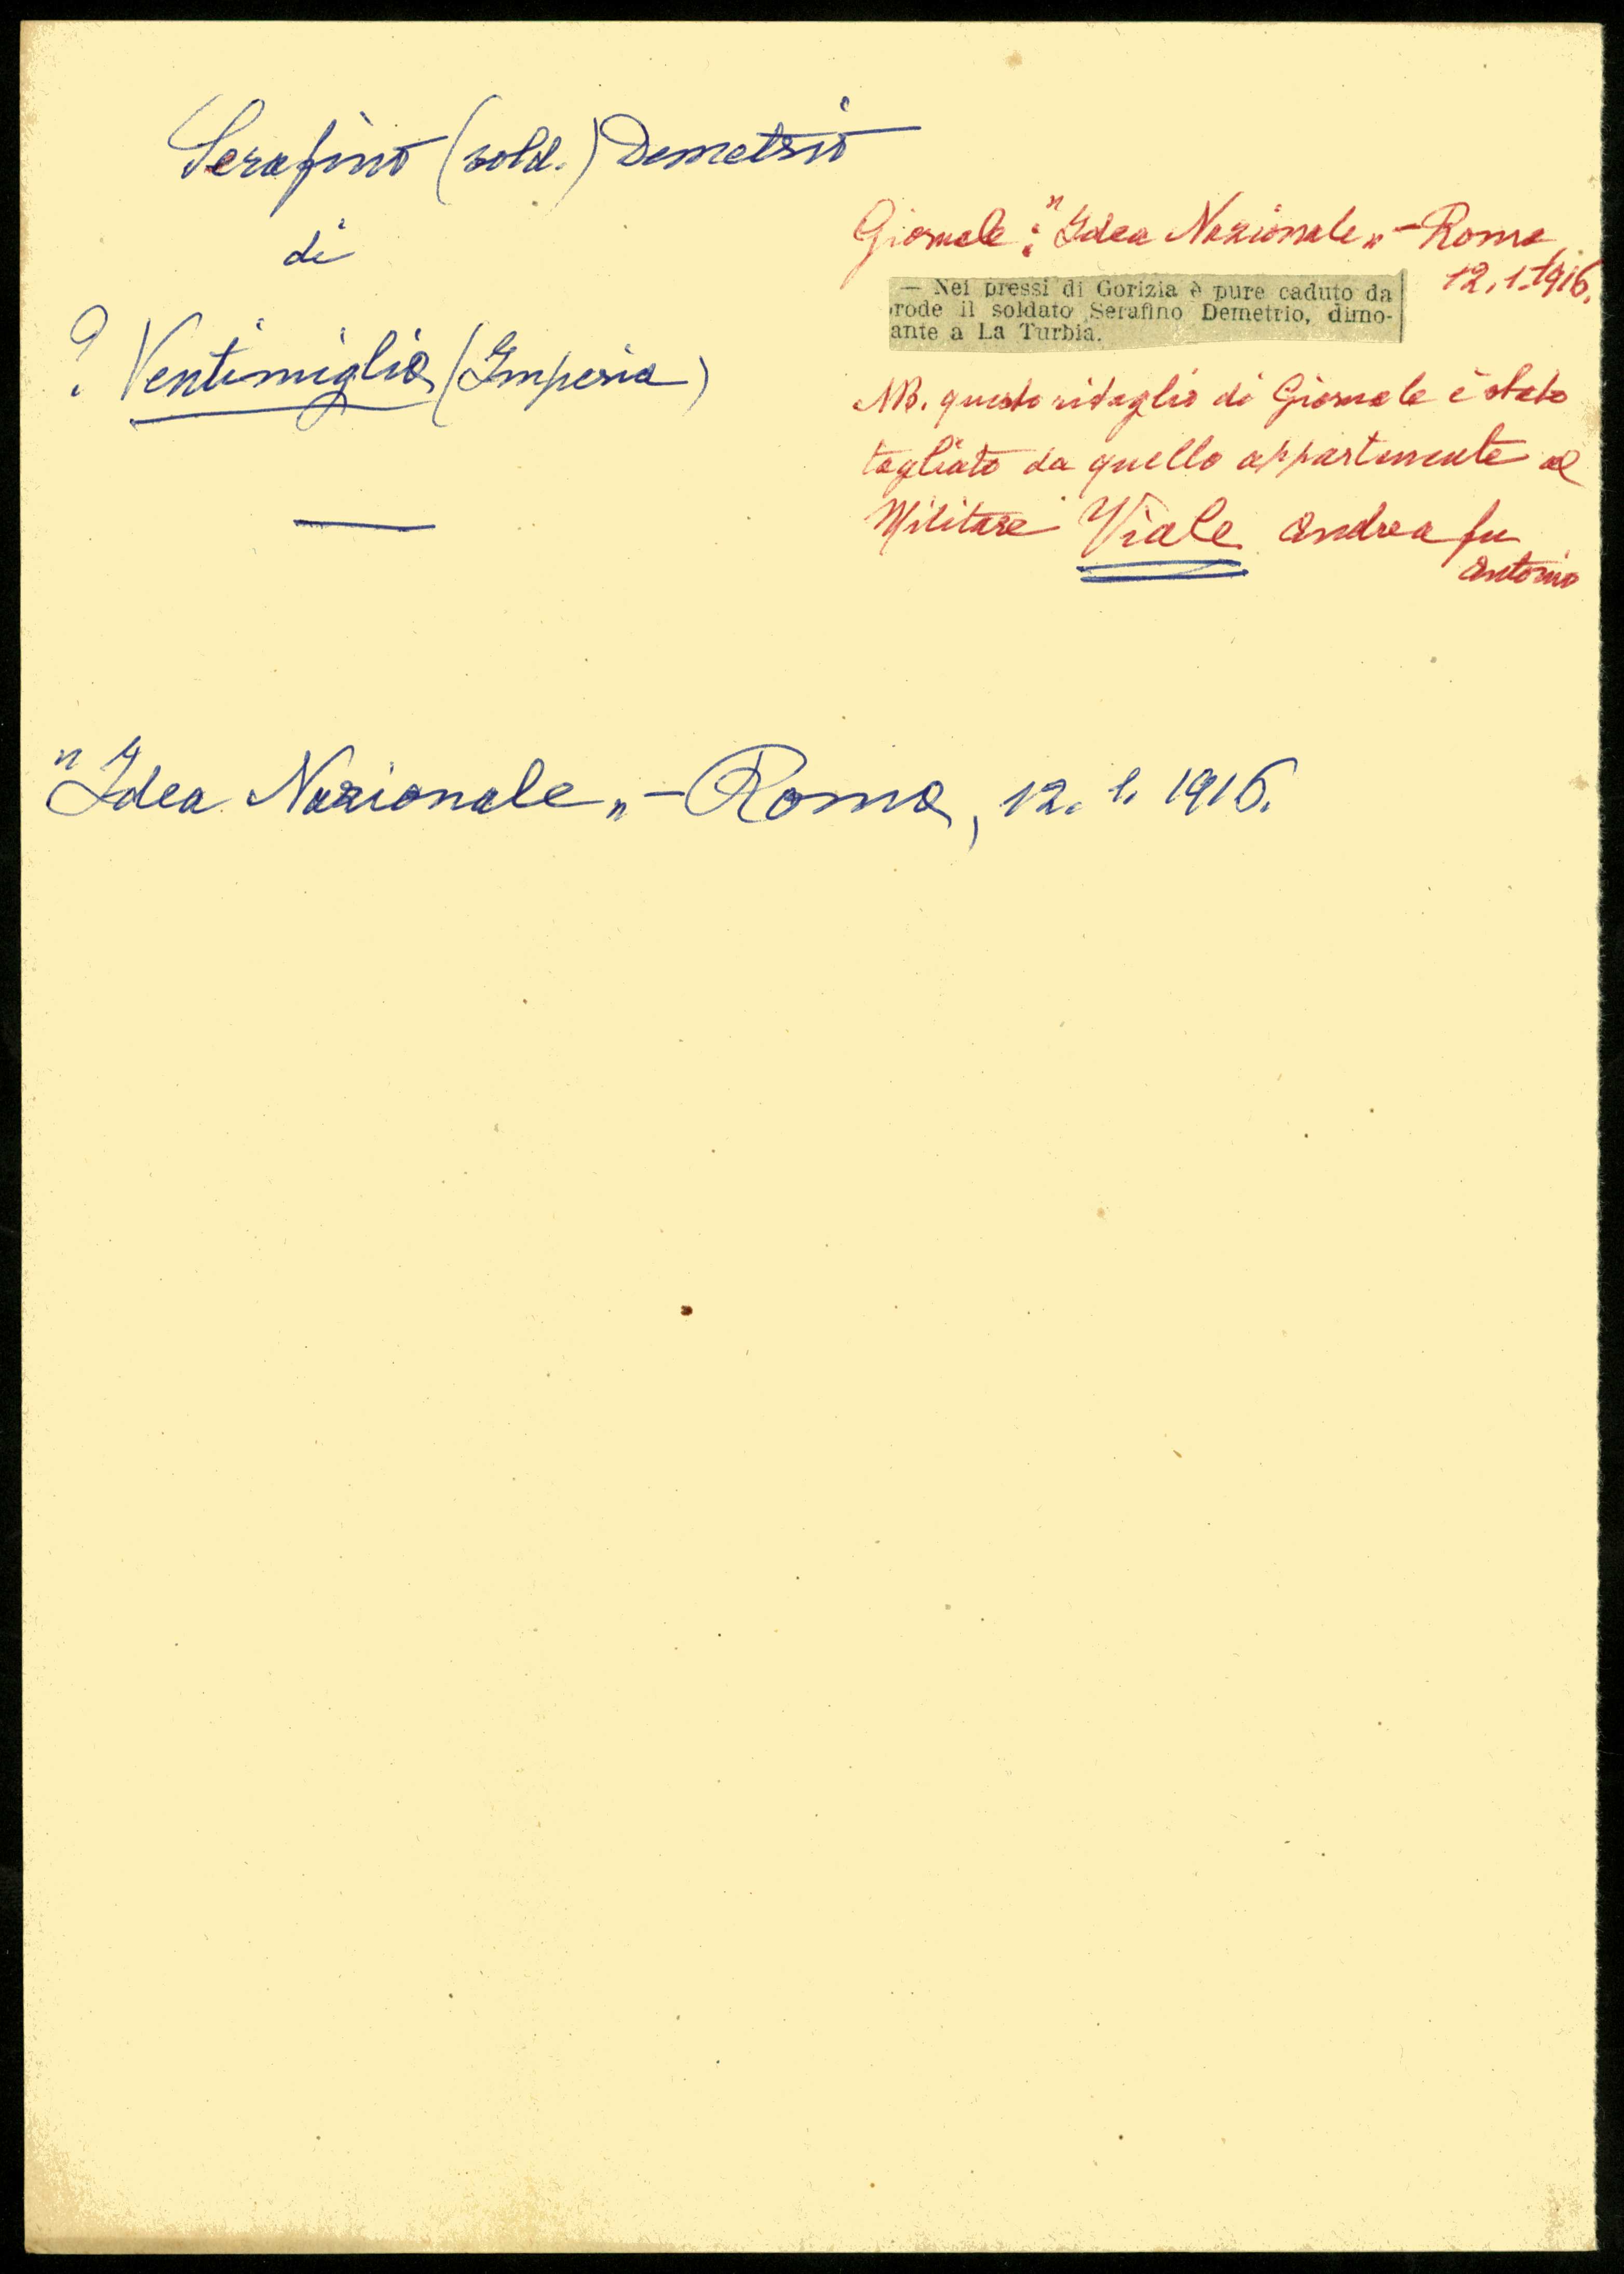 Serafino (sold.) Demetrio
di
? Ventimiglia (Imperia)
Giornale: "Idea Nazionale„ - Roma,
12.1.1916.
— Nei pressi di Gorizia è pure caduto da
rode il soldato Serafino Demetrio, dimo-
ante a La Turbia.
NB. questo ritaglio di Giornale è stato
tagliato da quello appartenente al
Militare Viale Andrea fu
Antonio
"Idea Nazionale„ - Roma, 12. 1. 1916.